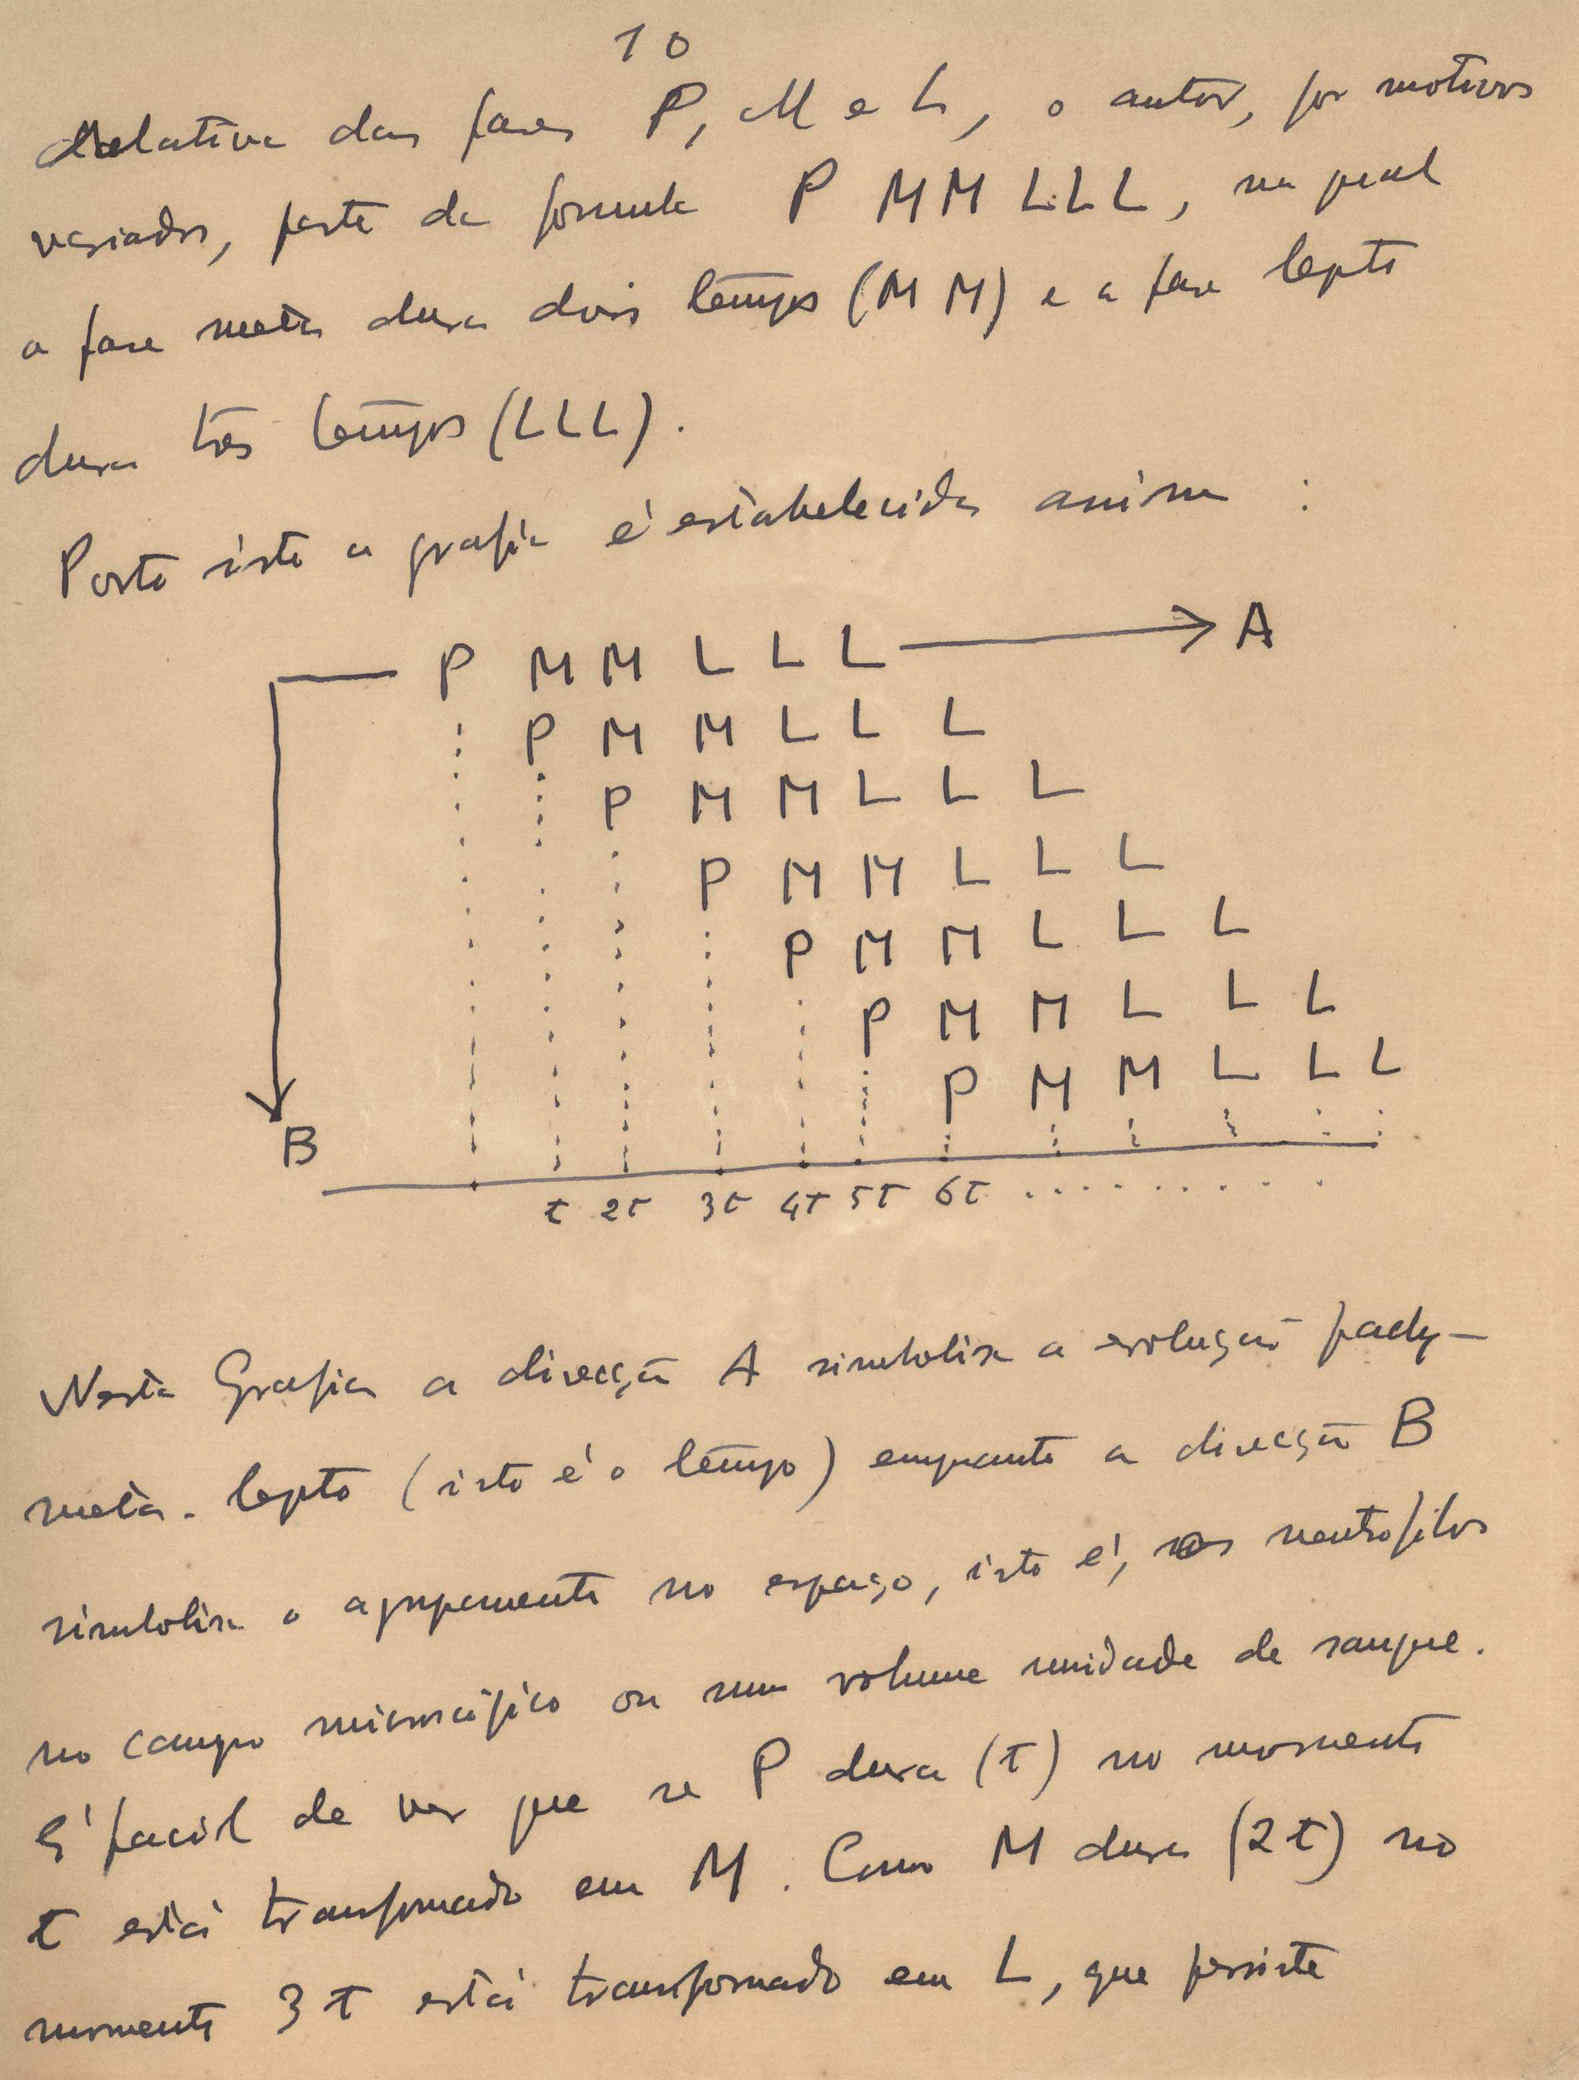 10
relativa das fases P, M e L, o autor, por motivos
variados, parte da formula P M M L L L, na qual
a fase meta dura dois tempos (M M) e a fase lepto
dura tres tempos (L L L).
Posto isto a grafia é estabelecida assim :
P M M L L L A
P M M L L L
P M M L L L
P M M L L L
P M M L L L
P M M L L L
P M M L L L
B
t 2t 3t 4t 5t 6t . . . . . . . . .
Nesta Grafia a direcção A simbolisa a evolução pachy-
meta-lepto (isto é o tempo) emquanto a direcção B
simbolisa o agrupamento no espaço, isto é, os neutrofilos
no campo microscópico ou num volume unidade de sangue.
É facil de ver que se P dura (t) no momento
t está transformado em M. Como M dura (2t) no
momento 3t está transformado em L, que persiste